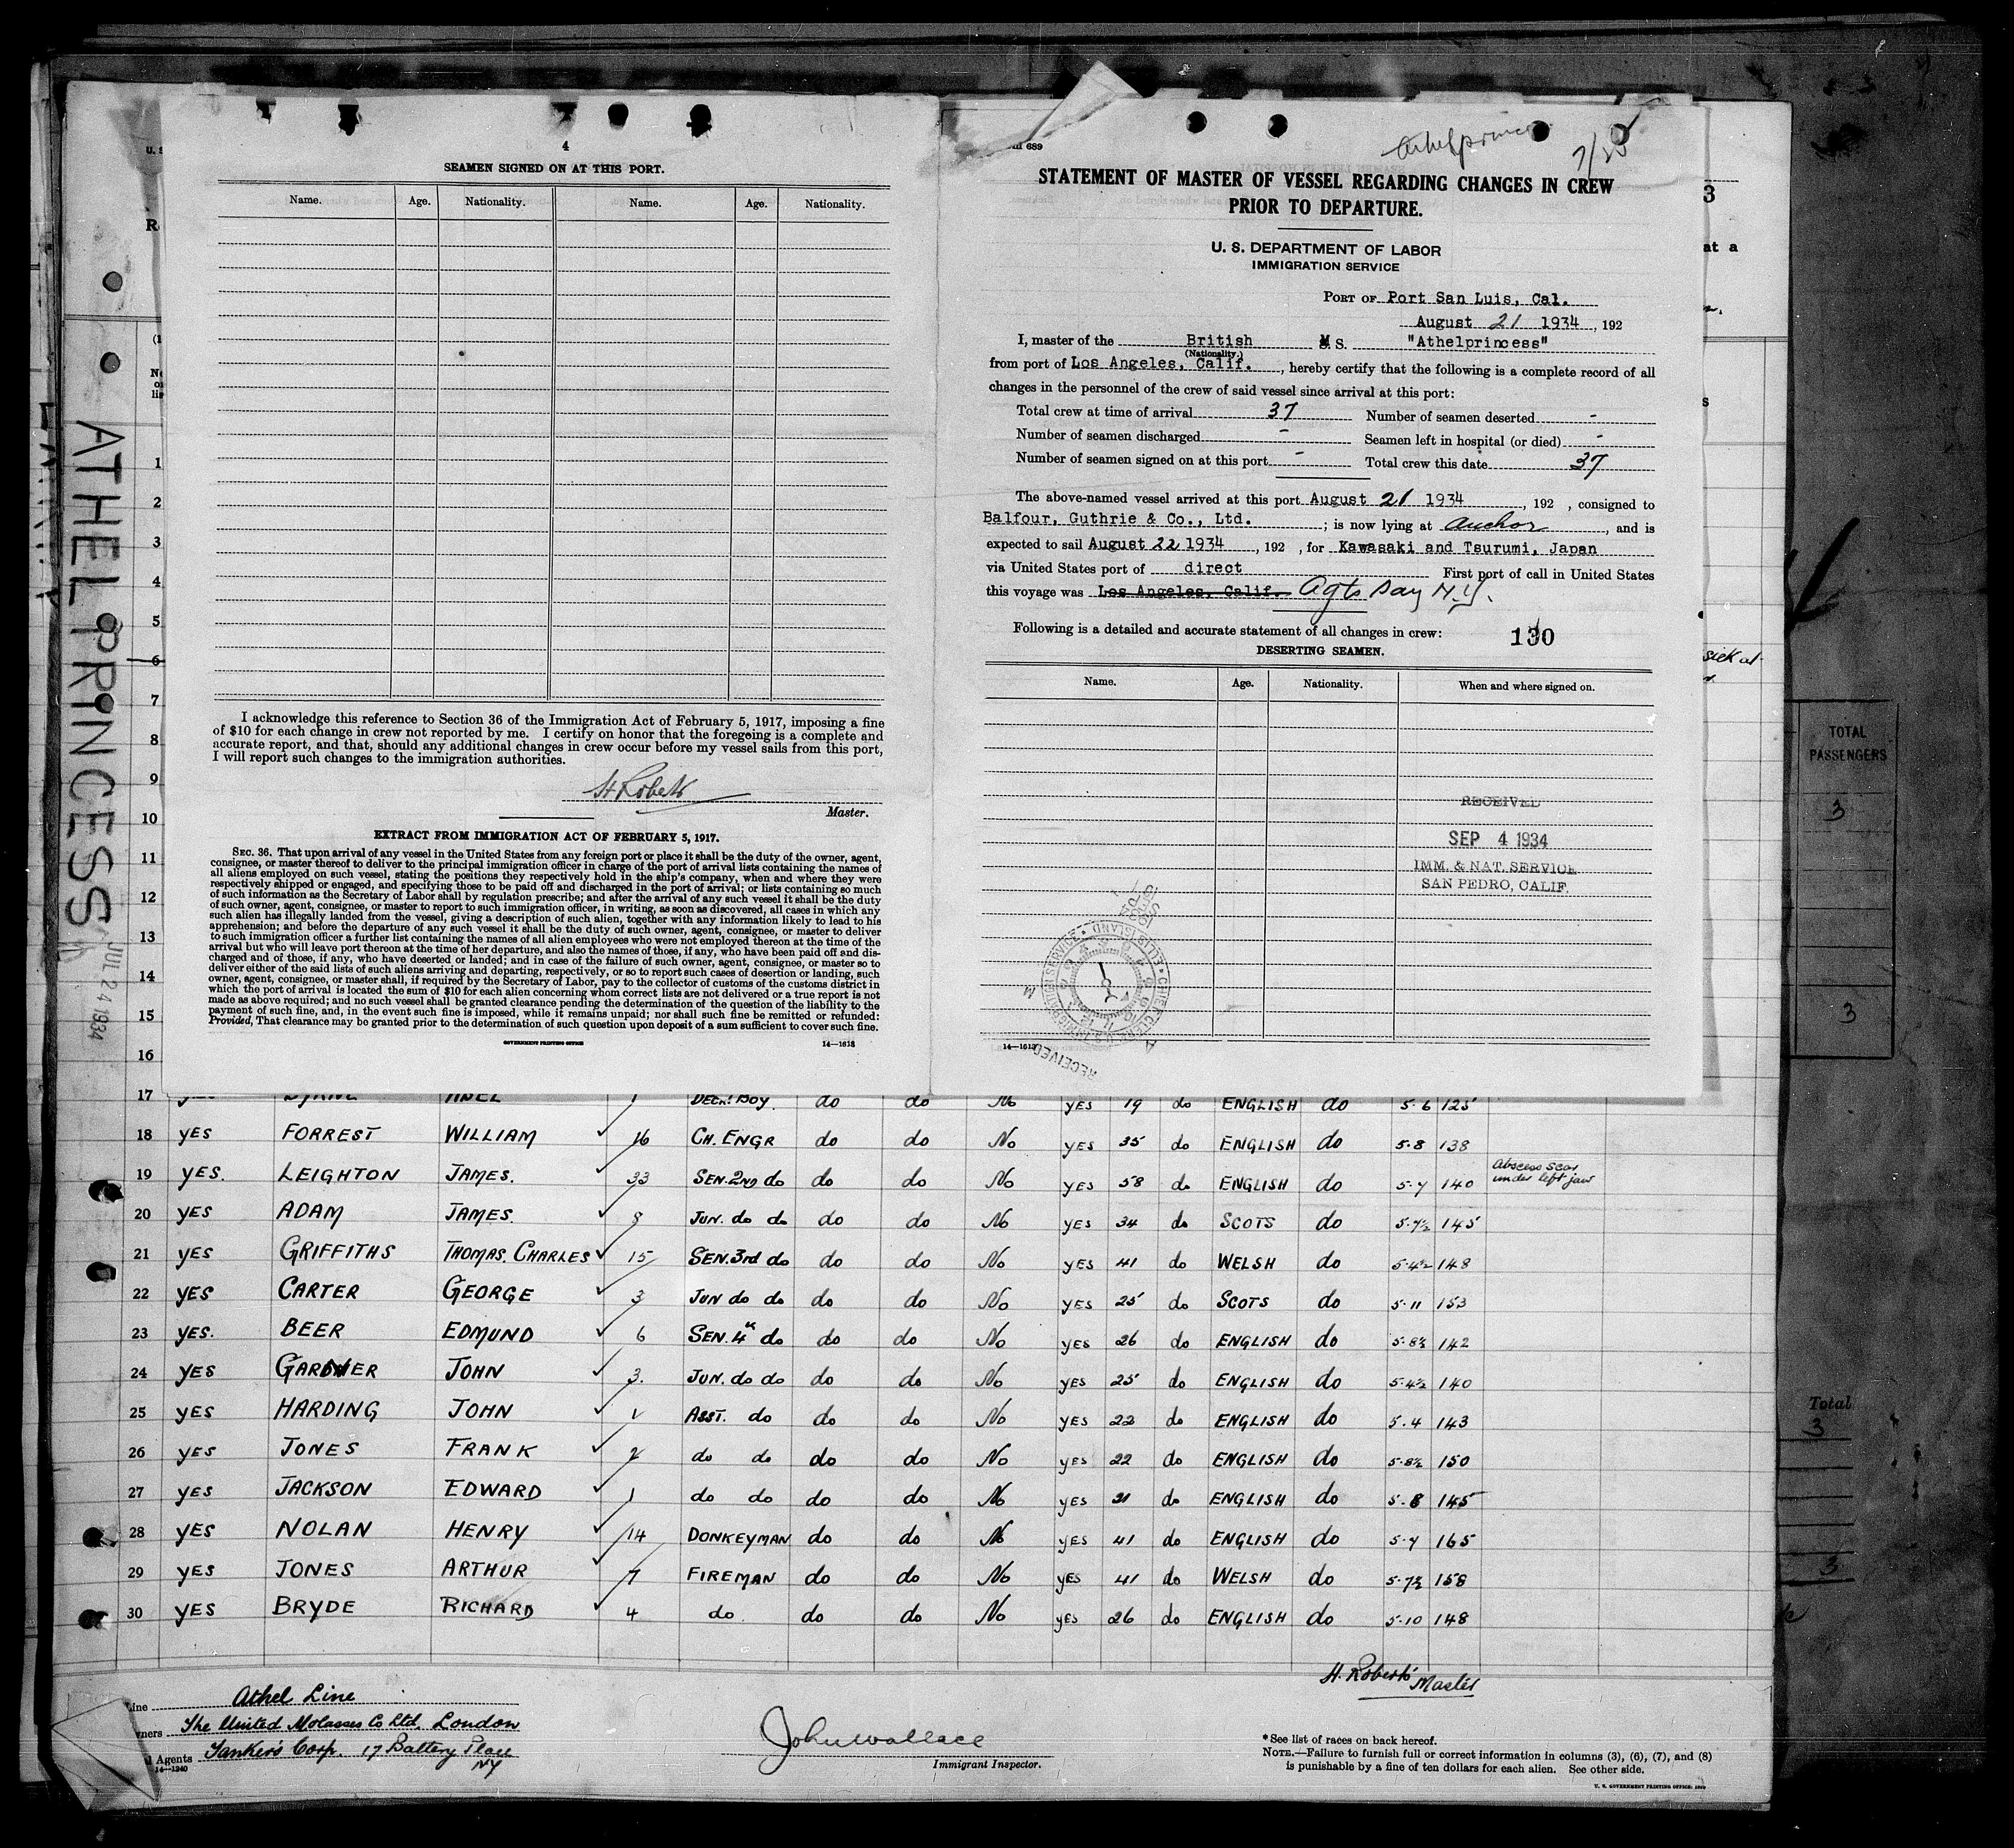 4
SEAMEN SIGNED ON AT THIS PORT.
Name. Age. Nationality. Name. Age. Nationality.
I acknowledge this reference to Section 36 of the Immigration Act of February 5, 1917, imposing a fine
of $10 for each change in crew not reported by me. I certify on honor that the foregoing is a complete and
accurate report, and that, should any additional changes in crew occur before my vessel sails from this port,
I will report such changes to the immigration authorities.
H Roberts
Master.
EXTRACT FROM IMMIGRATION ACT OF FEBRUARY 5, 1917.
SEC. 36. That upon arrival of any vessel in the United States from any foreign port or place it shall be the duty of the owner, agent,
consignee, or master thereof to deliver to the principal immigration officer in charge of the port of arrival lists containing the names of
all aliens employed on such vessel, stating the positions they respectively hold in the ship's company, when and where they were
respectively shipped or engaged, and specifying those to be paid off and discharged in the port of arrival; or lists containing so much
of such information as the Secretary of Labor shall by regulation prescribe; and after the arrival of any such vessel it shall be the duty
of such owner, agent, consignee, or master to report to such immigration officer, in writing, as soon as discovered, all cases in which any
such alien has illegally landed from the vessel, giving a description of such alien, together with any information likely to lead to his
apprehension; and before the departure of any such vessel it shall be the duty of such owner, agent, consignee, or master to deliver
to such immigration officer a further list containing the names of all alien employees who were not employed thereon at the time of the
arrival but who will leave port thereon at the time of her departure, and also the names of those, if any, who have been paid off and dis-
charged and of those, if any, who have deserted or landed; and in case of the failure of such owner, agent, consignee, or master so to
deliver either of the said lists of such aliens arriving and departing, respectively, or so to report such cases of desertion or landing, such
owner, agent, consignee, or master shall, if required by the Secretary of Labor, pay to the collector of customs of the customs district in
which the port of arrival is located the sum of $10 for each alien concerning whom correct lists are not delivered or a true report is not
made as above required; and no such vessel shall be granted clearance pending the determination of the question of the liability to the
payment of such fine, and, in the event such fine is imposed, while it remains unpaid; nor shall such fine be remitted or refunded:
Provided, That clearance may be granted prior to the determination of such question upon deposit of a sum sufficient to cover such fine.
GOVERNMENT PRINTING OFFICE 14—1613
689
Athelprincess 7/25
STATEMENT OF MASTER OF VESSEL REGARDING CHANGES IN CREW
PRIOR TO DEPARTURE.
U. S. DEPARTMENT OF LABOR
IMMIGRATION SERVICE
PORT OF Port San Luis, Cal.
August 21 1934, 192
I, master of the British M. S. "Athelprincess"
(Nationality.)
from port of Los Angeles, Calif., hereby certify that the following is a complete record of all
changes in the personnel of the crew of said vessel since arrival at this port:
Total crew at time of arrival 37 Number of seamen deserted -
Number of seamen discharged - Seamen left in hospital (or died) -
Number of seamen signed on at this port - Total crew this date 37
The above-named vessel arrived at this port August 21 1934, 192 , consigned to
Balfour, Guthrie & Co., Ltd. ; is now lying at anchor, and is
expected to sail August 22 1934, 192 , for Kawasaki and Tsurumi, Japan
via United States port of direct First port of call in United States
this voyage was Los Angeles, Calif. Agts say N.Y.
Following is a detailed and accurate statement of all changes in crew: 130
DESERTING SEAMEN.
Name. Age. Nationality. When and where signed on.
RECEIVED
SEP 4 1934
IMM. & NAT. SERVICE
SAN PEDRO, CALIF.
RECEIVED
ELLIS ISLAND
14—1613
ATHELPRINCESS
JUL 24 1934
3
at a
sick at
TOTAL
PASSENGERS
3
3
Total
3
3
1
2
3
4
5
6
7
8
9
10
11
12
13
14
15
16
17 DECK BOY do do No yES 19 do ENGLISH do 5·6 125
18 yES FORREST WILLIAM 16 CH. ENGR do do No yES 35 do ENGLISH do 5·8 138
19 yES. LEIGHTON JAMES. 33 SEN. 2ND do do do No yES 58 do ENGLISH do 5·7 140 Abscess scar under left jaw
20 yES ADAM JAMES. 8 JUN. do do do do No yES 34 do SCOTS do 5·7½ 145
21 yES GRIFFITHS THOMAS. CHARLES 15 SEN. 3rd do do do No yES 41 do WELSH do 5·4½ 148
22 yES CARTER GEORGE 3 JUN do do do do No yES 25 do SCOTS do 5·11 153
23 yES. BEER EDMUND 6 SEN. 4th do do do No yES 26 do ENGLISH do 5·8½ 142
24 yES GARDNER JOHN 3. JUN. do do do do No yES 25 do ENGLISH do 5·4½ 140
25 yES HARDING JOHN 1 ASST. do do do No yES 22 do ENGLISH do 5·4 143
26 yES JONES FRANK 2 do do do do No yES 22 do ENGLISH do 5·8½ 150
27 yES JACKSON EDWARD 1 do do do do No yES 21 do ENGLISH do 5·8 145
28 yES NOLAN HENRY 14 DONKEYMAN do do No yES 41 do ENGLISH do 5·7 165
29 yES JONES ARTHUR 7 FIREMAN do do No yES 41 do WELSH do 5·7½ 158
30 yES BRYDE RICHARD 4 do do do No yES 26 do ENGLISH do 5·10 148
H. Roberts Master
Line Athel Line
The United Molasses Co Ltd. London
Agents Tankers Corp. 17 Battery Place
NY
14—1240
John Wallace
Immigrant Inspector.
*See list of races on back hereof.
NOTE.—Failure to furnish full or correct information in columns (3), (6), (7), and (8)
is punishable by a fine of ten dollars for each alien. See other side.
U. S. GOVERNMENT PRINTING OFFICE: